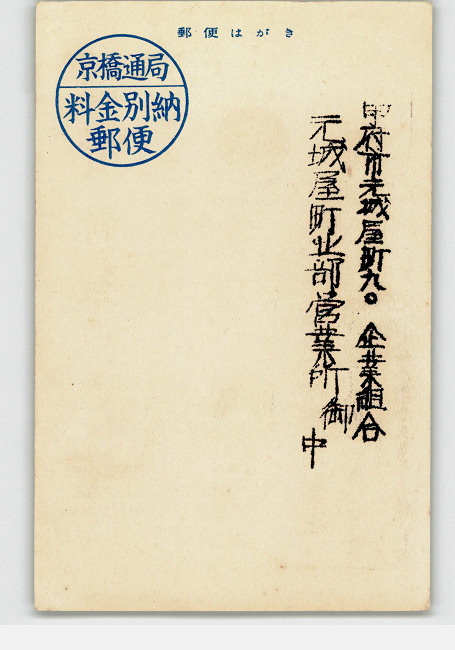 郵便はがき
京橋通局
料金別納
郵便
甲府市元城屋町九〇 企業組合
元城屋町北部営業所 御中